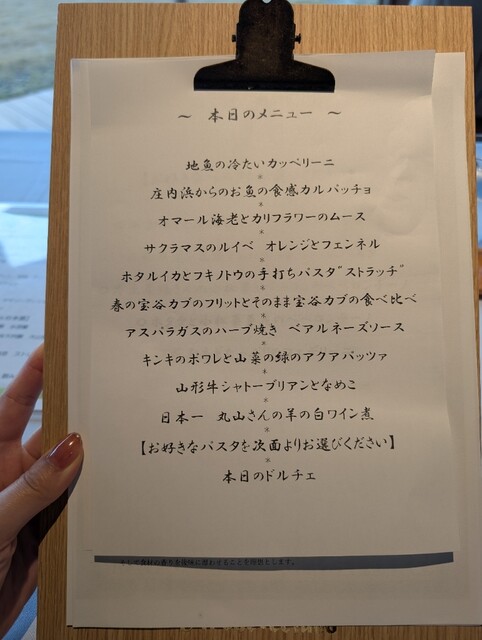 ～ 本日のメニュー ～
地魚の冷たいカッペリーニ
*
庄内浜からのお魚の食感カルパッチョ
*
オマール海老とカリフラワーのムース
*
サクラマスのルイベ オレンジとフェンネル
*
ホタルイカとフキノトウの手打ちパスタ"ストラッチ"
*
春の宝谷カブのフリットとそのまま宝谷カブの食べ比べ
*
アスパラガスのハーブ焼き ベアルネーズソース
*
キンキのポワレと山菜の緑のアクアパッツァ
*
山形牛シャトーブリアンとなめこ
*
日本一 丸山さんの羊の白ワイン煮
*
【お好きなパスタを次面よりお選びください】
*
本日のドルチェ